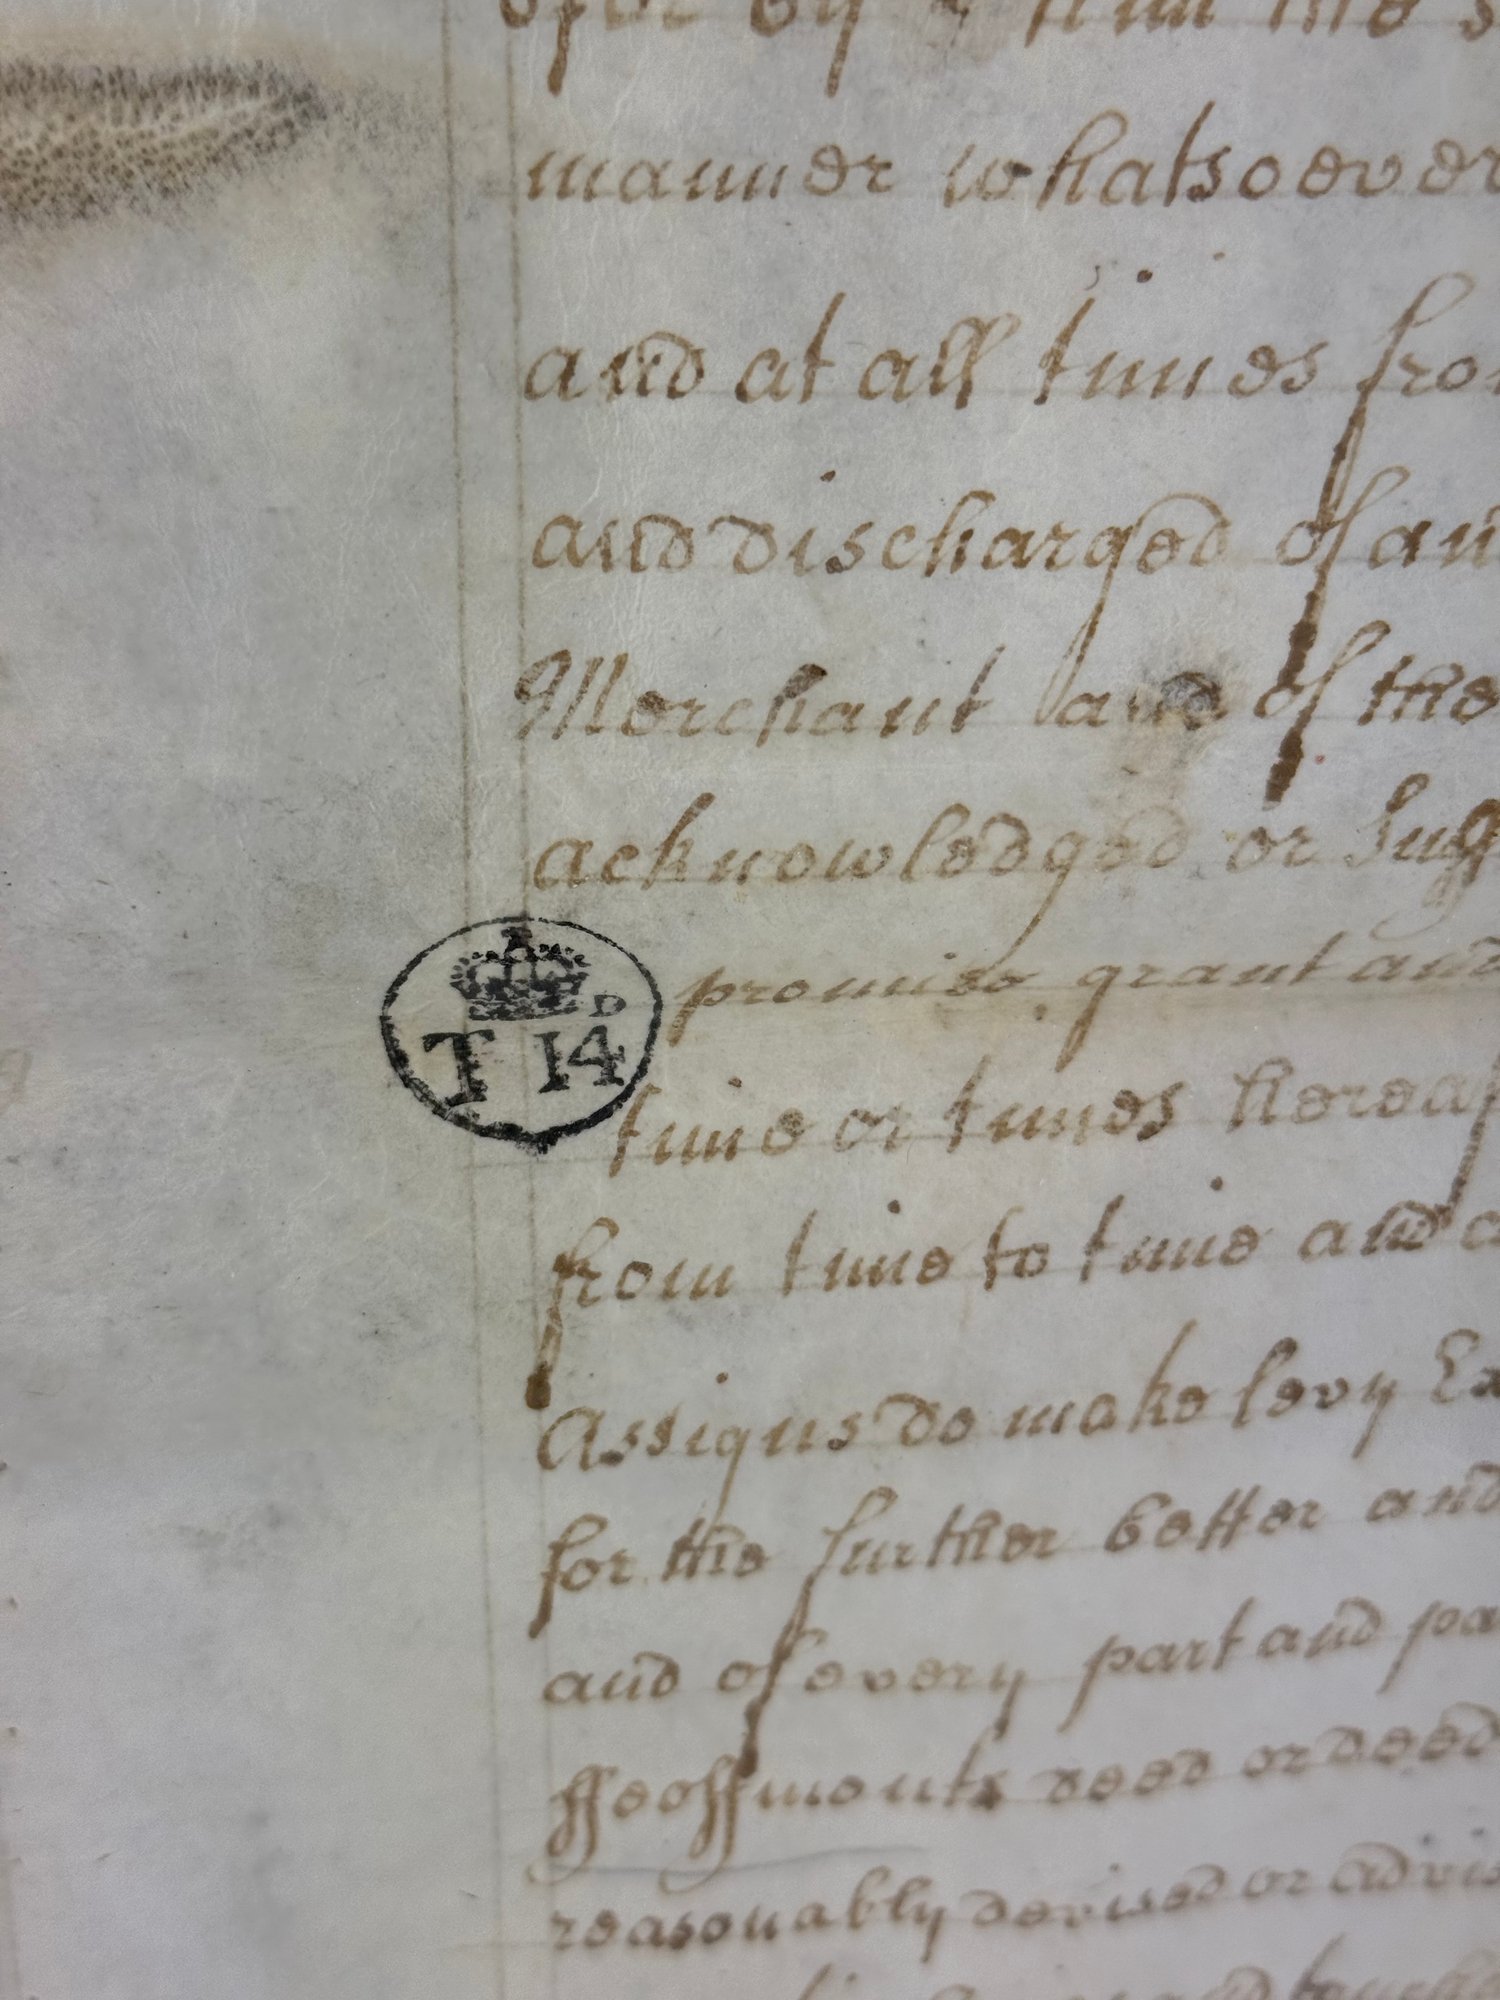 manner whatsoever
and at all times fro
and discharged of an
Merchant and of the
acknowledged or Suff
D
T 14
promise grant and
time or times hereaf
from time to time and a
Assigns do make levy Ex
for the further better and
and of every part and pa
ffeoffments deed or deed
reasonably devised or advis